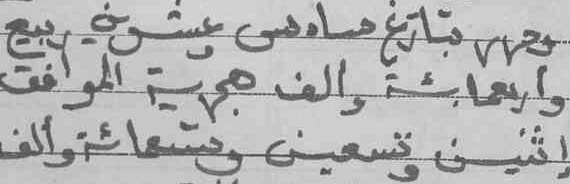 وحرر بتاريخ سادس وعشرين ربيع
وأربعمائة وألف هجرية الموافق
إثنين وتسعين وتسعمائة وألف